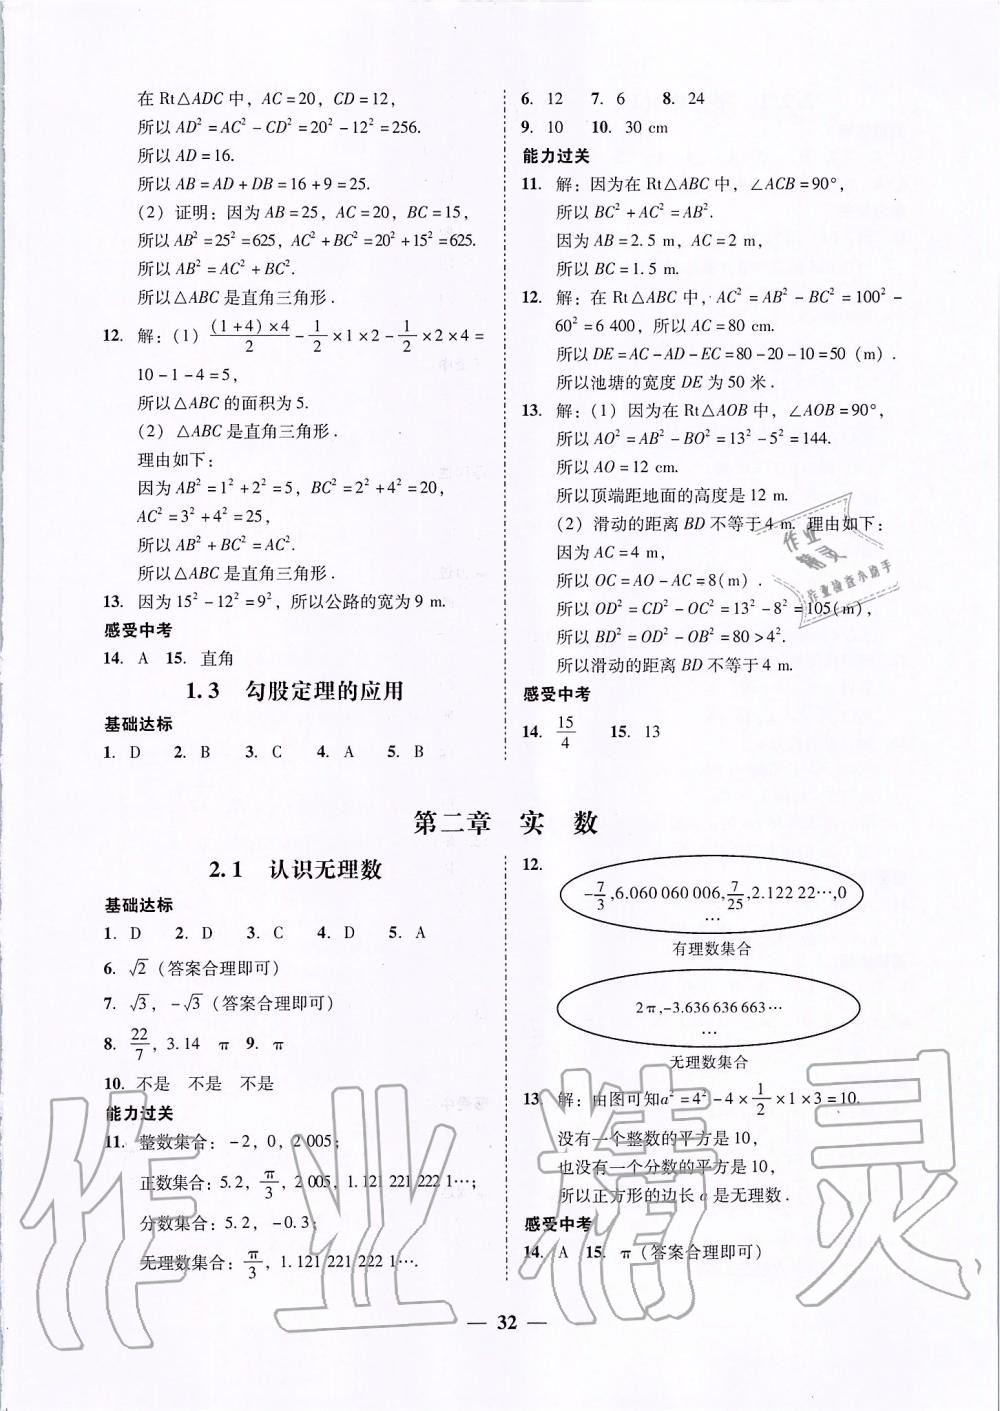 在 Rt△ADC 中，AC=20，CD=12，
所以 AD²=AC²-CD²=20²-12²=256.
所以 AD=16.
所以 AB=AD+DB=16+9=25.
(2) 证明：因为 AB=25，AC=20，BC=15，
所以 AB²=25²=625，AC²+BC²=20²+15²=625.
所以 AB²=AC²+BC².
所以△ABC 是直角三角形.
12. 解：(1) (1+4)×4/2-1/2×1×2-1/2×2×4=
10-1-4=5，
所以△ABC 的面积为 5.
(2) △ABC 是直角三角形.
理由如下：
因为 AB²=1²+2²=5，BC²=2²+4²=20，
AC²=3²+4²=25，
所以 AB²+BC²=AC².
所以△ABC 是直角三角形.
13. 因为 15²-12²=9²，所以公路的宽为 9 m.
感受中考
14. A 15. 直角
1.3 勾股定理的应用
基础达标
1. D 2. B 3. C 4. A 5. B
6. 12 7. 6 8. 24
9. 10 10. 30 cm
能力过关
11. 解：因为在 Rt△ABC 中，∠ACB=90°，
所以 BC²+AC²=AB².
因为 AB=2.5 m，AC=2 m，
所以 BC=1.5 m.
12. 解：在 Rt△ABC 中，AC²=AB²-BC²=100²-
60²=6 400，所以 AC=80 cm.
所以 DE=AC-AD-EC=80-20-10=50（m）.
所以池塘的宽度 DE 为 50 米.
13. 解：(1) 因为在 Rt△AOB 中，∠AOB=90°，
所以 AO²=AB²-BO²=13²-5²=144.
所以 AO=12 cm.
所以顶端距地面的高度是 12 m.
(2) 滑动的距离 BD 不等于 4 m. 理由如下：
因为 AC=4 m，
所以 OC=AO-AC=8(m).
所以 OD²=CD²-OC²=13²-8²=105(m)，
所以 BD²=OD²-OB²=80>4².
所以滑动的距离 BD 不等于 4 m.
感受中考
14. 15/4 15. 13
第二章 实 数
2.1 认识无理数
基础达标
1. D 2. D 3. C 4. D 5. A
6. √2（答案合理即可）
7. √3，-√3（答案合理即可）
8. 22/7，3.14 π 9. π
10. 不是 不是 不是
能力过关
11. 整数集合：-2，0，2 005；
正数集合：5.2，π/3，2 005，1.121 221 222 1…；
分数集合：5.2，-0.3；
无理数集合：π/3，1.121 221 222 1….
12.
-7/3,6.060 060 006,7/25,2.122 22…,0
…
有理数集合
2π,-3.636 636 663…
…
无理数集合
13. 解：由图可知a²=4²-4×1/2×1×3=10.
没有一个整数的平方是 10，
也没有一个分数的平方是 10，
所以正方形的边长 a 是无理数.
感受中考
14. A 15. π（答案合理即可）
— 32 —
作业精灵
作业
精灵
作业检查小助手